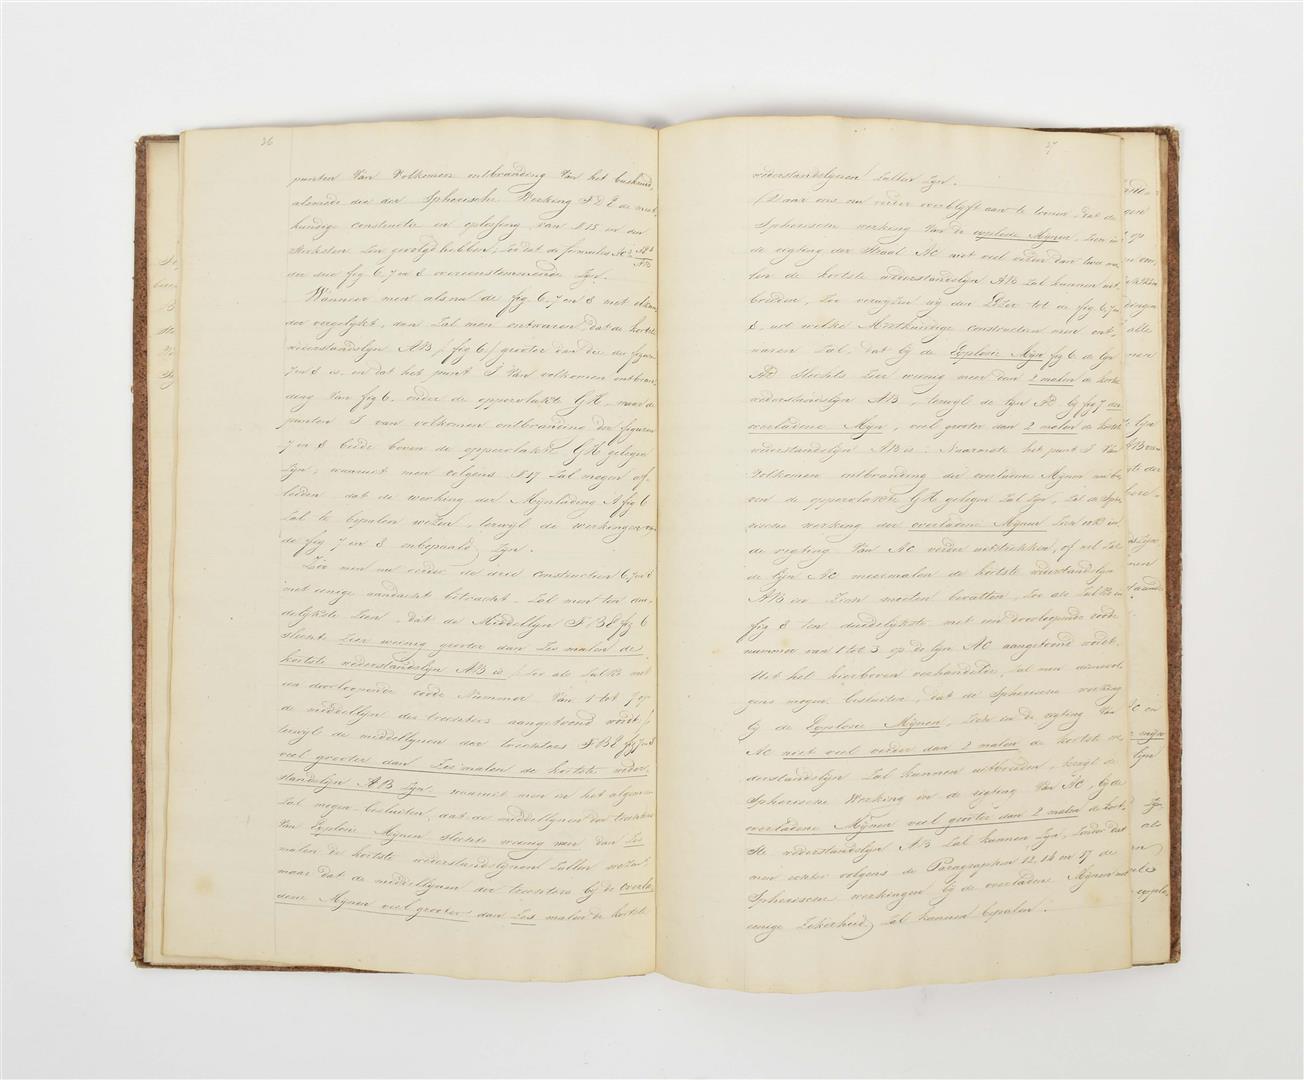 36
punten Van Volkomen ontbranding Van het buskruid,
alsmede die der Spherische Werking F D E de meet-
kundige constructie en oplossing van § 15 in den
Zeer gevolgd hebben, Zoo dat de formules AC =
der drie fig 6, 7 en 8 overeenstemmende Zyn.
Wanneer men alsnu de fig 6, 7 en 8 met elkan-
der vergelykt, dan Zal men ontwaren, dat de kortste
wederstandslyn AB / fig 6 / grooter dan die der figuren
7 en 8 is, en dat het punt I Van volkomen ontbran-
ding Van fig 6, onder de oppervlakte GH, maar de
punten I van volkomen ontbranding der figuren
7 en 8 beide boven de oppervlakte GH gelegen
Zyn; waaruit men volgens § 17 Zal mogen af-
leiden dat de werking der Mynlading A fig 6
Zal te bepalen wezen, terwyl de werkingen van
de fig 7 en 8 onbepaald Zyn.
Zoo men nu verder de drie constructien 6, 7 en 8
met eenige aandacht betracht, Zal men ten dui-
delykste Zien, dat de Middellyn F B E fig 6
slechts Zeer weinig grooter dan Zes malen de
kortste wederstandslyn AB is / Zoo als Zulks met
een doorloopende roode Nummer Van 1 tot 7 op
de middellyn des trechters aangetoond wordt /
terwyl de middellynen der trechters F B E fig 7 en 8
veel grooter dan Zes malen de kortste weder-
standslyn AB Zyn. waaruit men in het algemeen
Zal mogen besluiten, dat de middellynen der trechters
Van Explosie Mynen slechts weinig meer dan Zes
malen de kortste wederstandslynen Zullen wezen,
maar dat de middellynen der trechters by de overla-
dene Mynen veel grooter dan Zes malen de kortste
37
wederstandslynen Zullen Zyn.
Daar ons nu verder overblyft aan te toonen, dat de
Spherische werking Van de explosie Mynen, Zich in
de rigting der Straal AC niet veel verder dan twee ma-
len de kortste wederstandslyn AB Zal kunnen uit-
breiden, Zoo verwyzen wy den Lezer tot de fig 6, 7 en
8, uit welke Meetkundige constructien men ont-
waren Zal, dat by de Explosie Myn fig 6 de lyn
AC slechts Zeer weinig meer dan 2 malen de kortste
wederstandslyn AB, terwyl de lyn AC by fig 7 der
overladene Myn, veel grooter dan 2 malen de kortste
wederstandslyn AB is. Naarmate het punt I Van
Volkomen ontbranding der overladene Mynen meer bo-
ven de oppervlakte GH gelegen Zal Zyn, Zal de Sphe-
rische werking der overladene Mynen Zich ook in
de rigting Van AC verder uitstrekken, of wel Zal
de lyn AC meermalen de kortste wederstandslyn
AB in Zich moeten bevatten, Zoo als Zulks in
fig 8 ten duidelykste met een doorloopende roode
nummer van 1 tot 3 op de lyn AC aangetoond wordt.
Uit het hierboven verhandelde, Zal men dienvol-
gens mogen besluiten, dat de Spherische werking
by de Explosie Mynen, Zich in de rigting Van
AC niet veel verder dan 2 malen de kortste we-
derstandslyn Zal kunnen uitbreiden, terwyl de
Spherische Werking in de rigting Van AC, by de
overladene Mynen veel grooter dan 2 malen de kort-
ste wederstandslyn AB Zal kunnen Zyn, Zonder dat
men echter volgens de Paragraphen 12, 14 en 17 de
Spherische werkingen by de overladene Mynen met
eenige Zekerheid Zal kunnen bepalen.